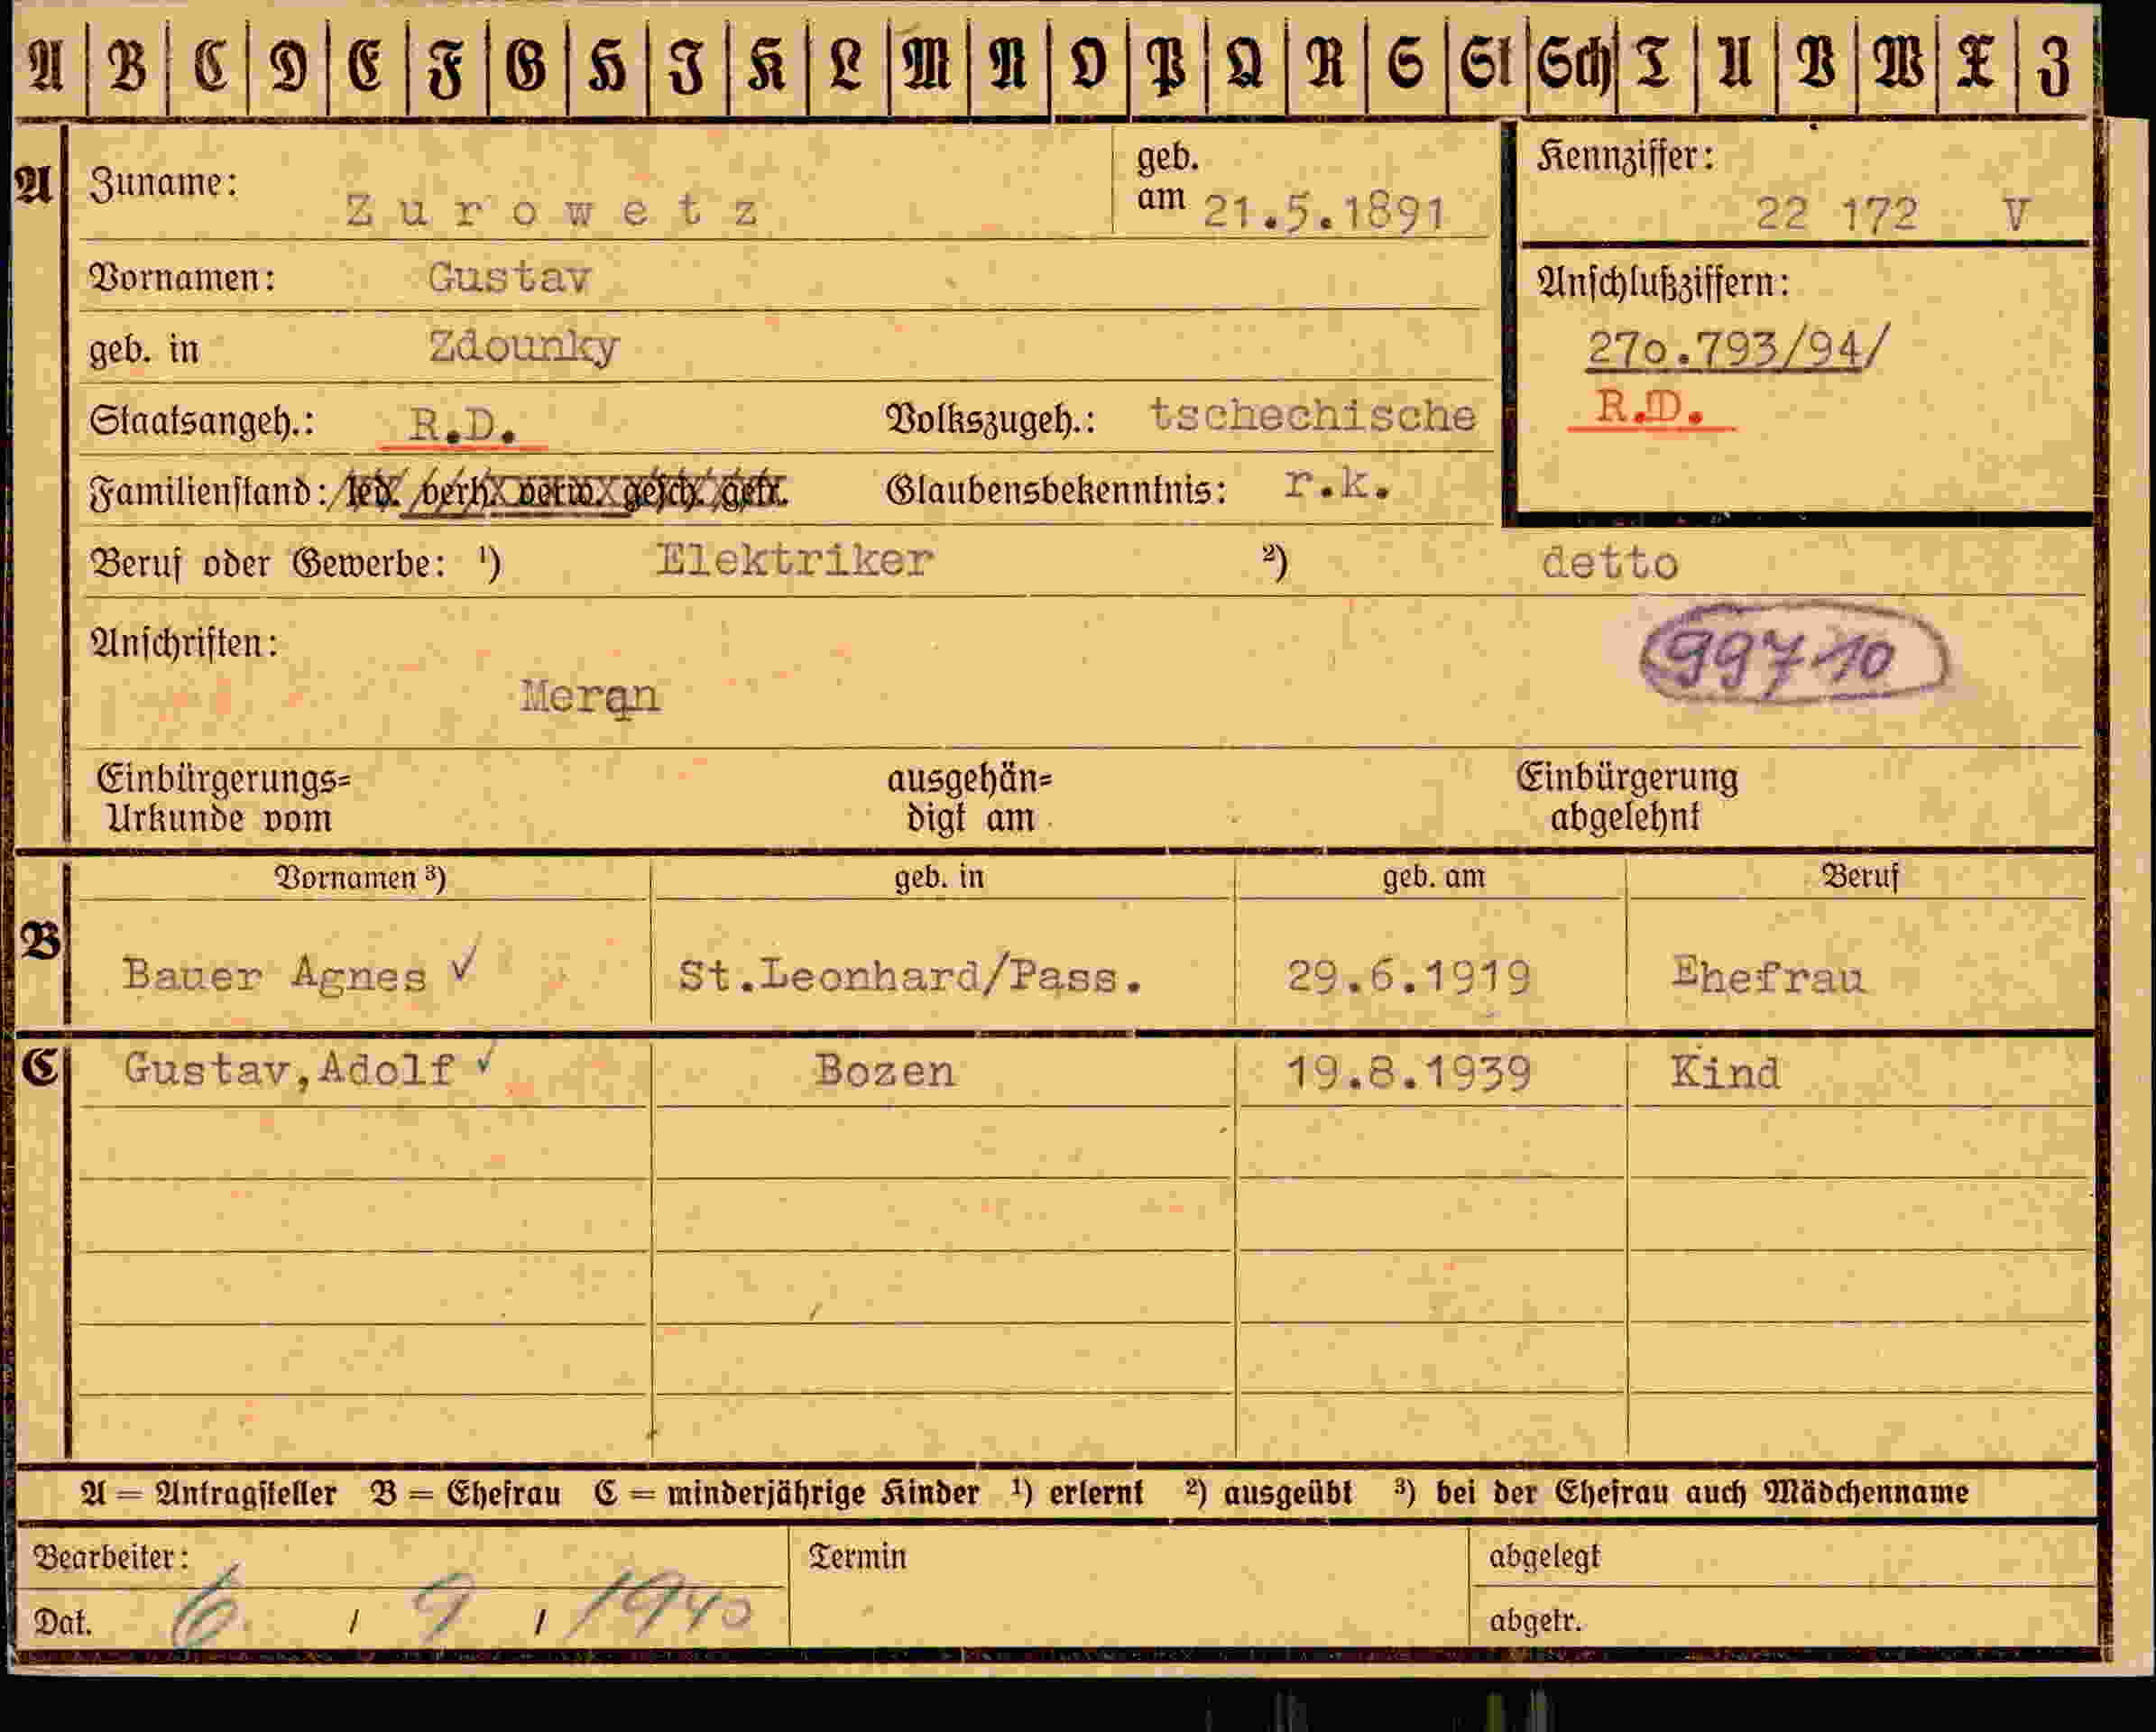 A B C D E F G H I K L M N O P Q R S St Sch T U V W X Z
A Zuname: Zurowetz geb. am 21.5.1891 Kennziffer: 22 172 V
Vornamen: Gustav Anschlußziffern:
geb. in Zdounky 27o.793/94/
Staatsangeh.: R.D. Volkszugeh.: tschechische R.D.
Familienstand: led. verh. verw. gesch. getr. Glaubensbekenntnis: r.k.
Beruf oder Gewerbe: ¹) Elektriker ²) detto
Anschriften: 99710
Meran
Einbürgerungs= ausgehän= Einbürgerung
Urkunde vom digt am abgelehnt
Vornamen ³) geb. in geb. am Beruf
B Bauer Agnes ✓ St.Leonhard/Pass. 29.6.1919 Ehefrau
C Gustav,Adolf ✓ Bozen 19.8.1939 Kind
A = Antragsteller B = Ehefrau C = minderjährige Kinder ¹) erlernt ²) ausgeübt ³) bei der Ehefrau auch Mädchenname
Bearbeiter: Termin abgelegt
Dat. 6 / 9 / 1940 abgetr.